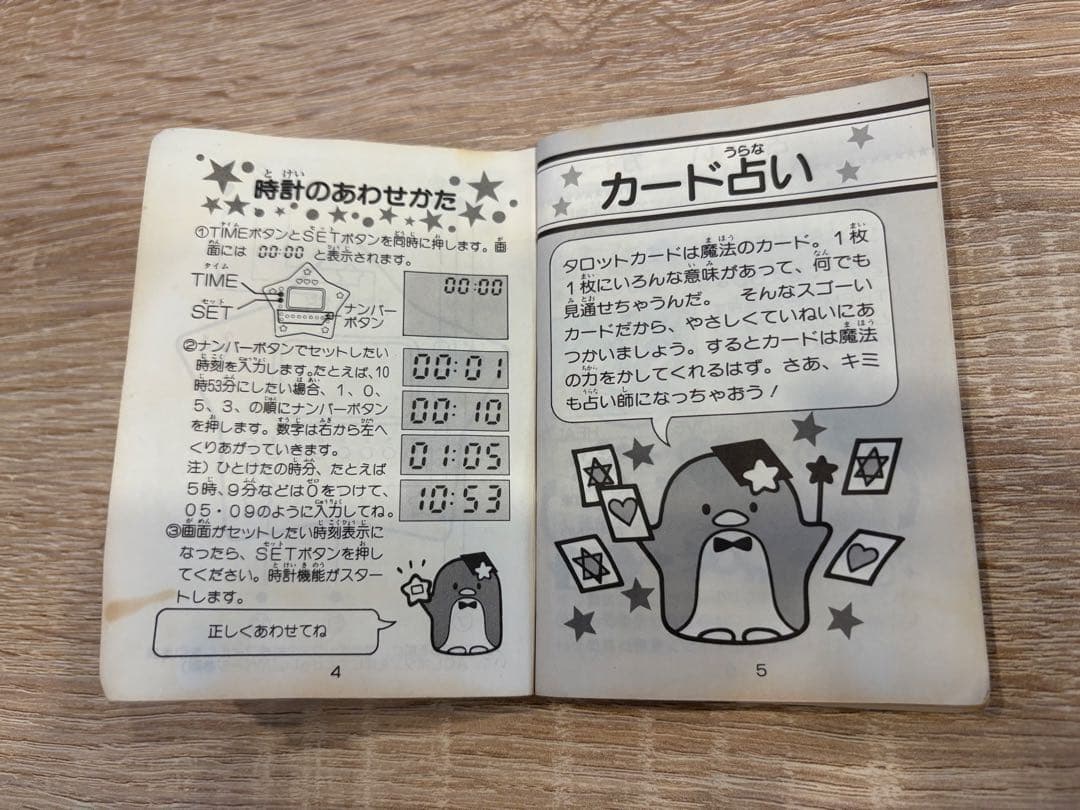 時計のあわせかた
とけい
①TIMEボタンとSETボタンを同時に押します。画
面には 00:00 と表示されます。
タイム
TIME
セット
SET
ナンバー
ボタン
00:00
②ナンバーボタンでセットしたい
時刻を入力します。たとえば、10
時53分にしたい場合、1、0、
5、3、の順にナンバーボタン
を押します。数字は右から左へ
くりあがっていきます。
注）ひとけたの時分、たとえば
5時、9分などは0をつけて、
05・09のように入力してね。
00:01
00:10
01:05
10:53
③画面がセットしたい時刻表示に
なったら、SETボタンを押し
てください。時計機能がスター
トします。
正しくあわせてね
4
うらな
カード占い
タロットカードは魔法のカード。1枚
1枚にいろんな意味があって、何でも
見通せちゃうんだ。 そんなスゴーい
カードだから、やさしくていねいにあ
つかいましょう。するとカードは魔法
の力をかしてくれるはず。さあ、キミ
も占い師になっちゃおう！
5